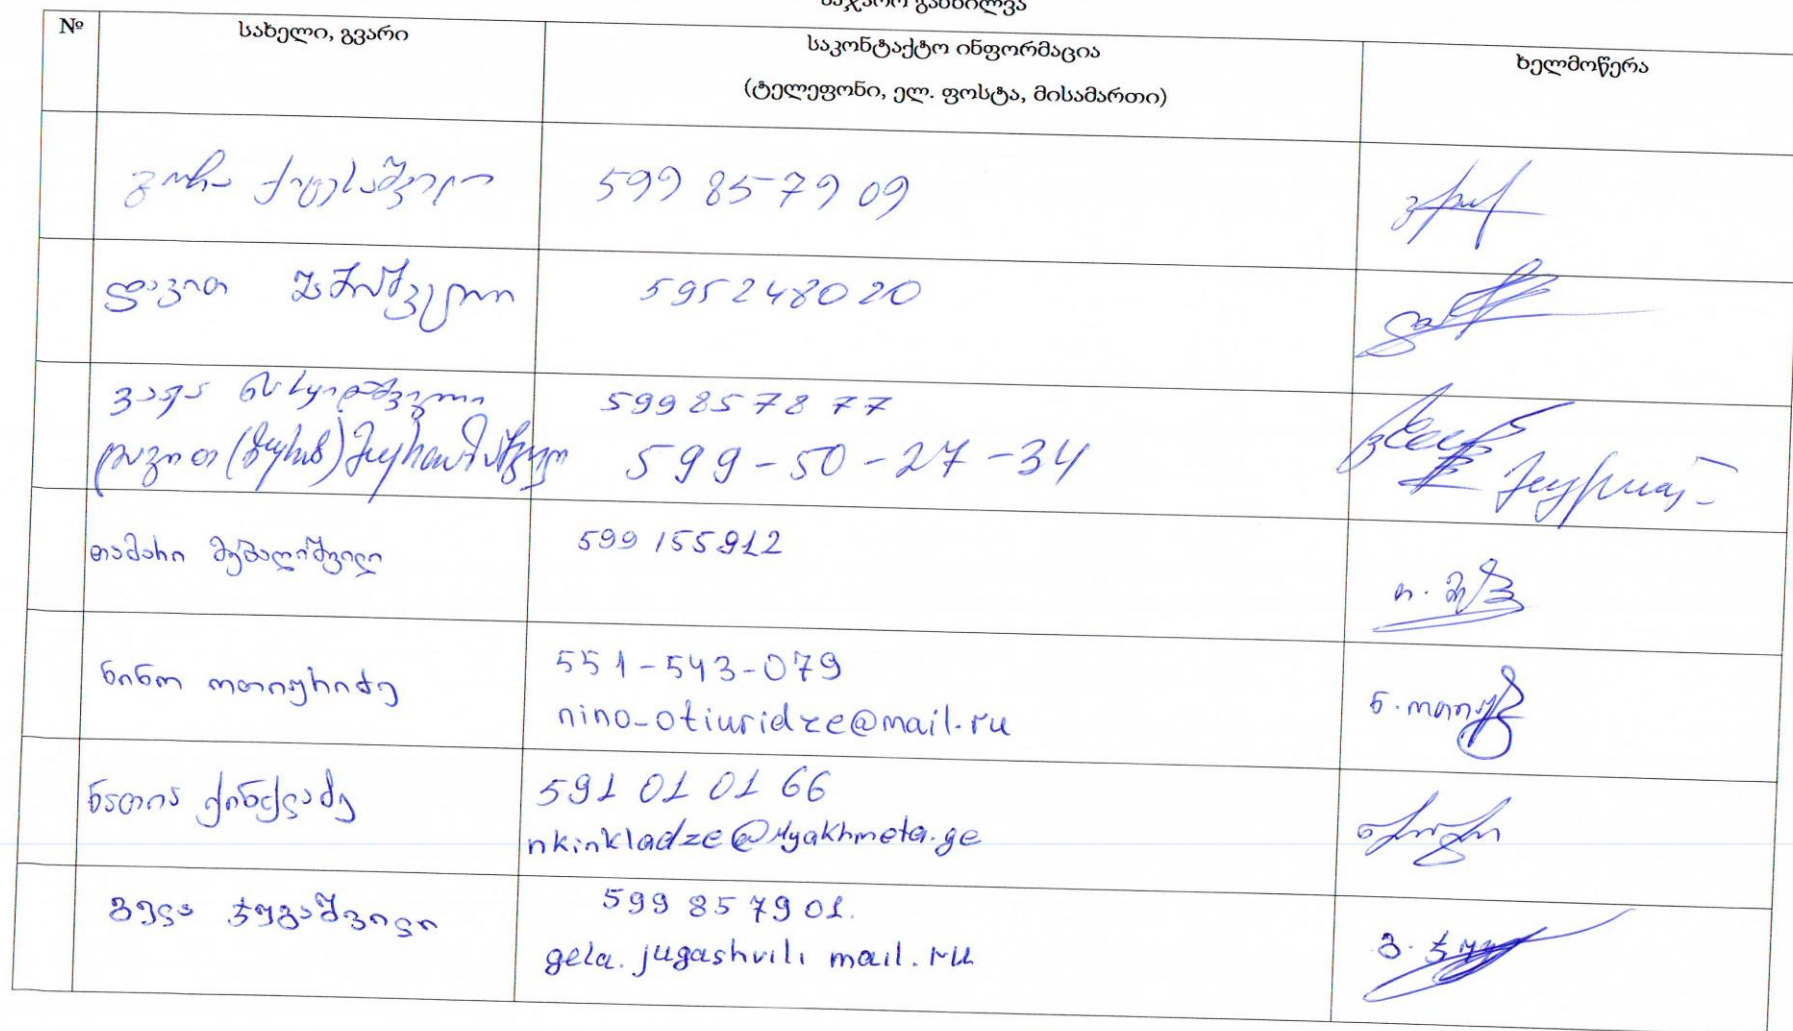 საჯარო განხილვა
№ სახელი, გვარი საკონტაქტო ინფორმაცია ხელმოწერა
(ტელეფონი, ელ. ფოსტა, მისამართი)
გოჩა 599 85 79 09
დავით 595248020
ვაჟა 599857877
დავით 599-50-27-34
თამარი 599 155912
ნინო ოთიურიძე 551-543-079
nino-otiuridze@mail.ru
ნ. ოთიურ
ნათია ქინქლაძე 591 01 01 66
nkinkladze@myakhmeta.ge
გელა ჯუგაშვილი 599 857901.
gela.jugashvili mail.ru
გ. ჯუგ